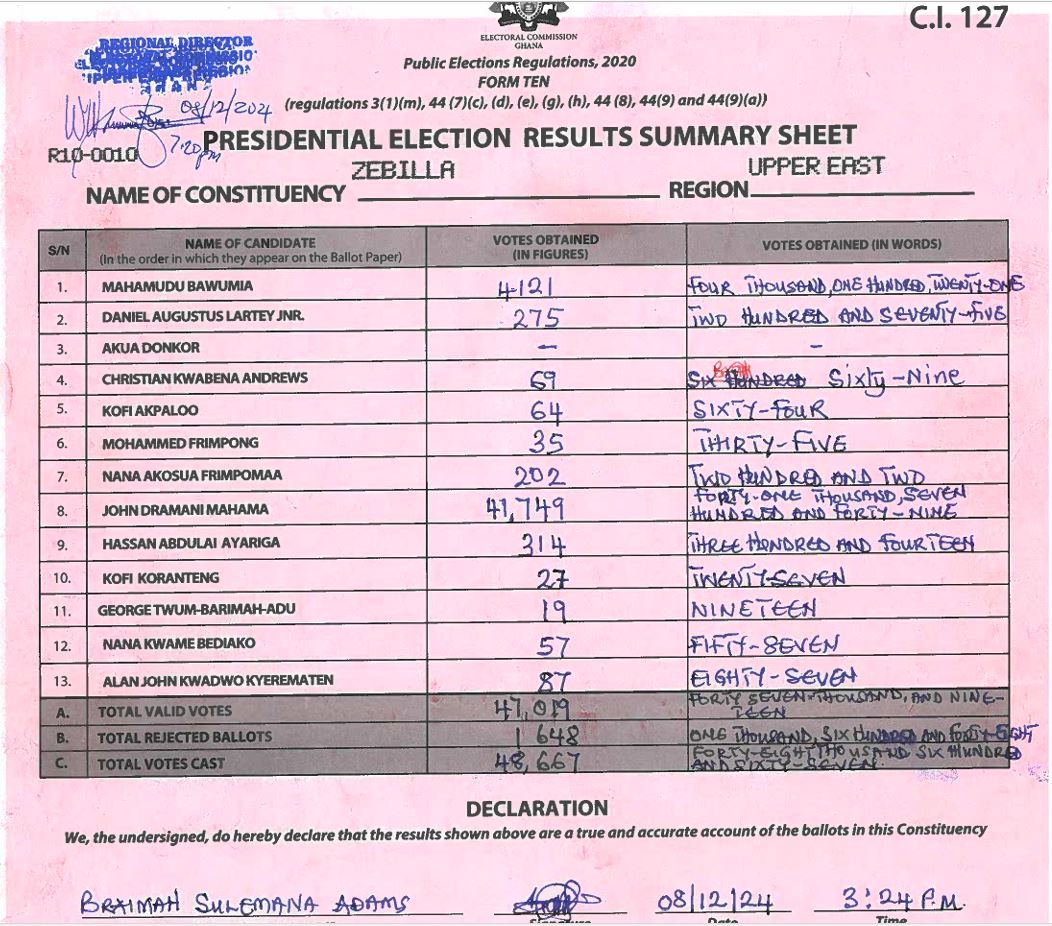 C.I. 127
ELECTORAL COMMISSION
GHANA
REGIONAL DIRECTOR
08/12/2024
7:20pm
Public Elections Regulations, 2020
FORM TEN
(regulations 3(1)(m), 44 (7)(c), (d), (e), (g), (h), 44 (8), 44(9) and 44(9)(a))
PRESIDENTIAL ELECTION RESULTS SUMMARY SHEET
R10-0010
NAME OF CONSTITUENCY ZEBILLA REGION UPPER EAST
S/N NAME OF CANDIDATE (In the order in which they appear on the Ballot Paper) VOTES OBTAINED (IN FIGURES) VOTES OBTAINED (IN WORDS)
1. MAHAMUDU BAWUMIA 4121 FOUR THOUSAND, ONE HUNDRED, TWENTY-ONE
2. DANIEL AUGUSTUS LARTEY JNR. 275 TWO HUNDRED AND SEVENTY-FIVE
3. AKUA DONKOR — –
4. CHRISTIAN KWABENA ANDREWS 69 SIX HUNDRED Sixty-Nine
5. KOFI AKPALOO 64 SIXTY-FOUR
6. MOHAMMED FRIMPONG 35 THIRTY-FIVE
7. NANA AKOSUA FRIMPOMAA 202 TWO HUNDRED AND TWO
8. JOHN DRAMANI MAHAMA 41,749 FORTY-ONE THOUSAND, SEVEN HUNDRED AND FORTY-NINE
9. HASSAN ABDULAI AYARIGA 314 THREE HUNDRED AND FOURTEEN
10. KOFI KORANTENG 27 TWENTY-SEVEN
11. GEORGE TWUM-BARIMAH-ADU 19 NINETEEN
12. NANA KWAME BEDIAKO 57 FIFTY-SEVEN
13. ALAN JOHN KWADWO KYEREMATEN 87 EIGHTY-SEVEN
A. TOTAL VALID VOTES 47,019 FORTY SEVEN-THOUSAND, AND NINE-TEEN
B. TOTAL REJECTED BALLOTS 1 648 ONE THOUSAND, SIX HUNDRED AND FORTY-EIGHT
C. TOTAL VOTES CAST 48,667 FORTY-EIGHT THOUSAND SIX HUNDRED AND SIXTY-SEVEN.
DECLARATION
We, the undersigned, do hereby declare that the results shown above are a true and accurate account of the ballots in this Constituency
BRAIMAH SULEMANA ADAMS 08/12/24 3:24 P.M.
Signature Date Time